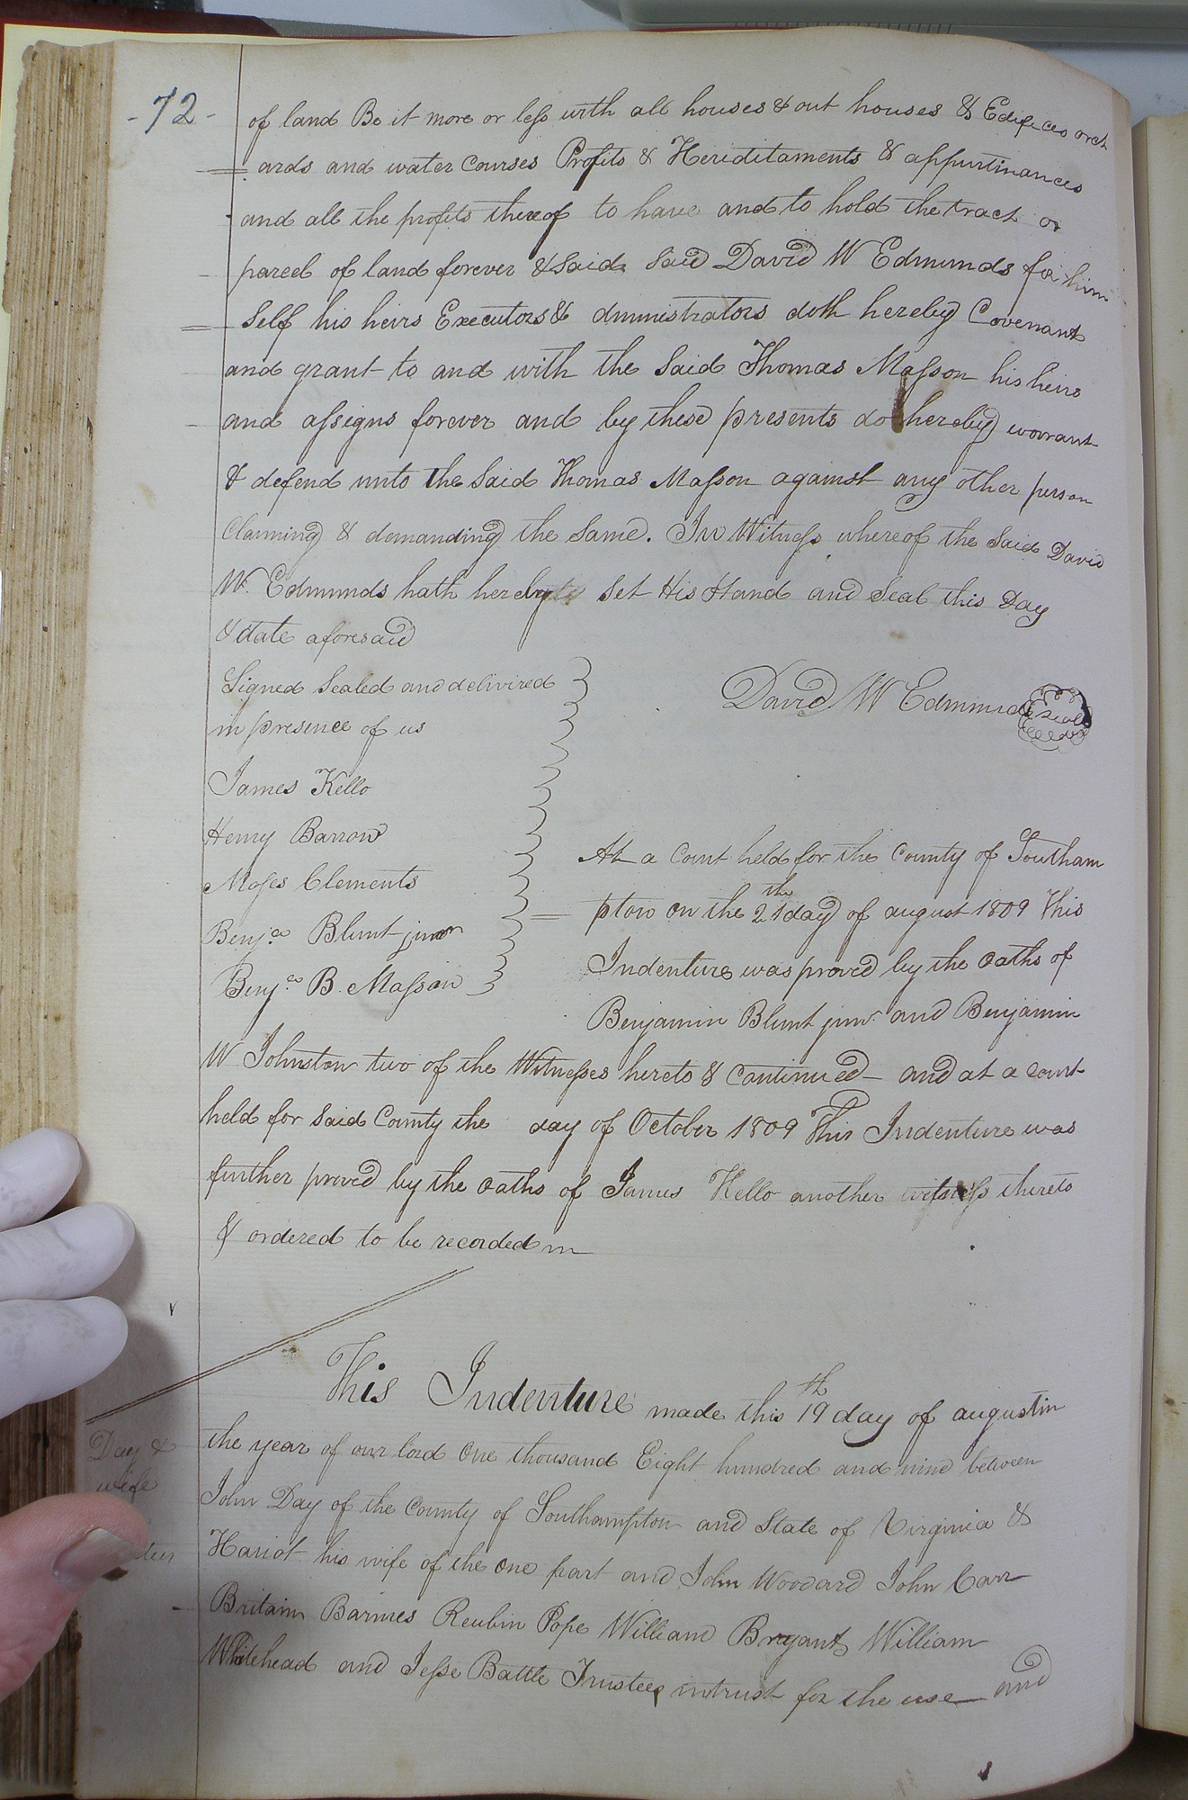 -72-
of land Be it more or less with all houses & out houses & Edifices orch
ards and water Courses Profits & Hereditaments & appurtinances
and all the profits thereof to have and to hold the tract or
parcel of land forever & said said David W Edmunds for him
self his heirs Executors & dministrators doth hereby Covenant
and grant to and with the Said Thomas Masson his heirs
and assigns forever and by these presents do hereby warrant
& defend unto the Said Thomas Masson against any other person
Claiming & demanding the Same. In Witness whereof the Said David
W. Edmunds hath hereby set His Hand and Seal this Day
& date aforesaid
Signed Sealed and delivired
in presence of us
David W Edmunds Seal
James Kello
Henry Barrow
Moses Clements
Benja Blunt junr
Benja B. Masson
At a Court held for the County of Southam
pton on the 21th day of august 1809 This
Indenture was proved by the Oaths of
Benjamin Blunt junr. and Benjamin
W Johnston two of the Witnesses hereto & Continued and at a court
held for Said County the day of October 1809 This Indenture was
further proved by the Oaths of James Kello another witness thereto
& ordered to be recorded
This Indenture made this 19th day of august in
the year of our lord One thousand Eight hundred and nine between
Day &
wife
John Day of the County of Southampton and State of Virginia &
Hariot his wife of the One part and John Woodard John Carr
Britain Barnes Reubin Pope William Bryant William
Whitehead and Jesse Battle Trustees intrust for the use and